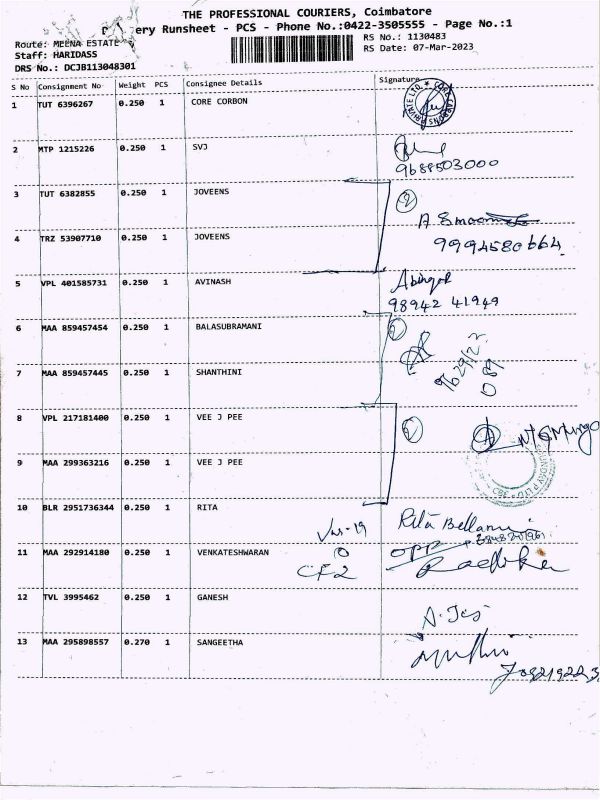 THE PROFESSIONAL COURIERS, Coimbatore
ery Runsheet - PCS - Phone No.:0422-3505555 - Page No.:1
Route: MEENA ESTATE
RS No.: 1130483
Staff: HARIDASS
RS Date: 07-Mar-2023
DRS No.: DCJB113048301
S No Consignment No Weight PCS Consignee Details Signature
1 TUT 6396267 0.250 1 CORE CORBON
2 MTP 1215226 0.250 1 SVJ
9688503000
3 TUT 6382855 0.250 1 JOVEENS
2
4 TRZ 53907710 0.250 1 JOVEENS
9994580664
5 VPL 401585731 0.250 1 AVINASH
98942 41949
6 MAA 859457454 0.250 1 BALASUBRAMANI
7 MAA 859457445 0.250 1 SHANTHINI
8 VPL 217181400 0.250 1 VEE J PEE
9 MAA 299363216 0.250 1 VEE J PEE
10 BLR 2951736344 0.250 1 RITA
Rita
11 MAA 292914180 0.250 1 VENKATESHWARAN
opp
CF2
12 TVL 3995462 0.250 1 GANESH
13 MAA 295898557 0.270 1 SANGEETHA